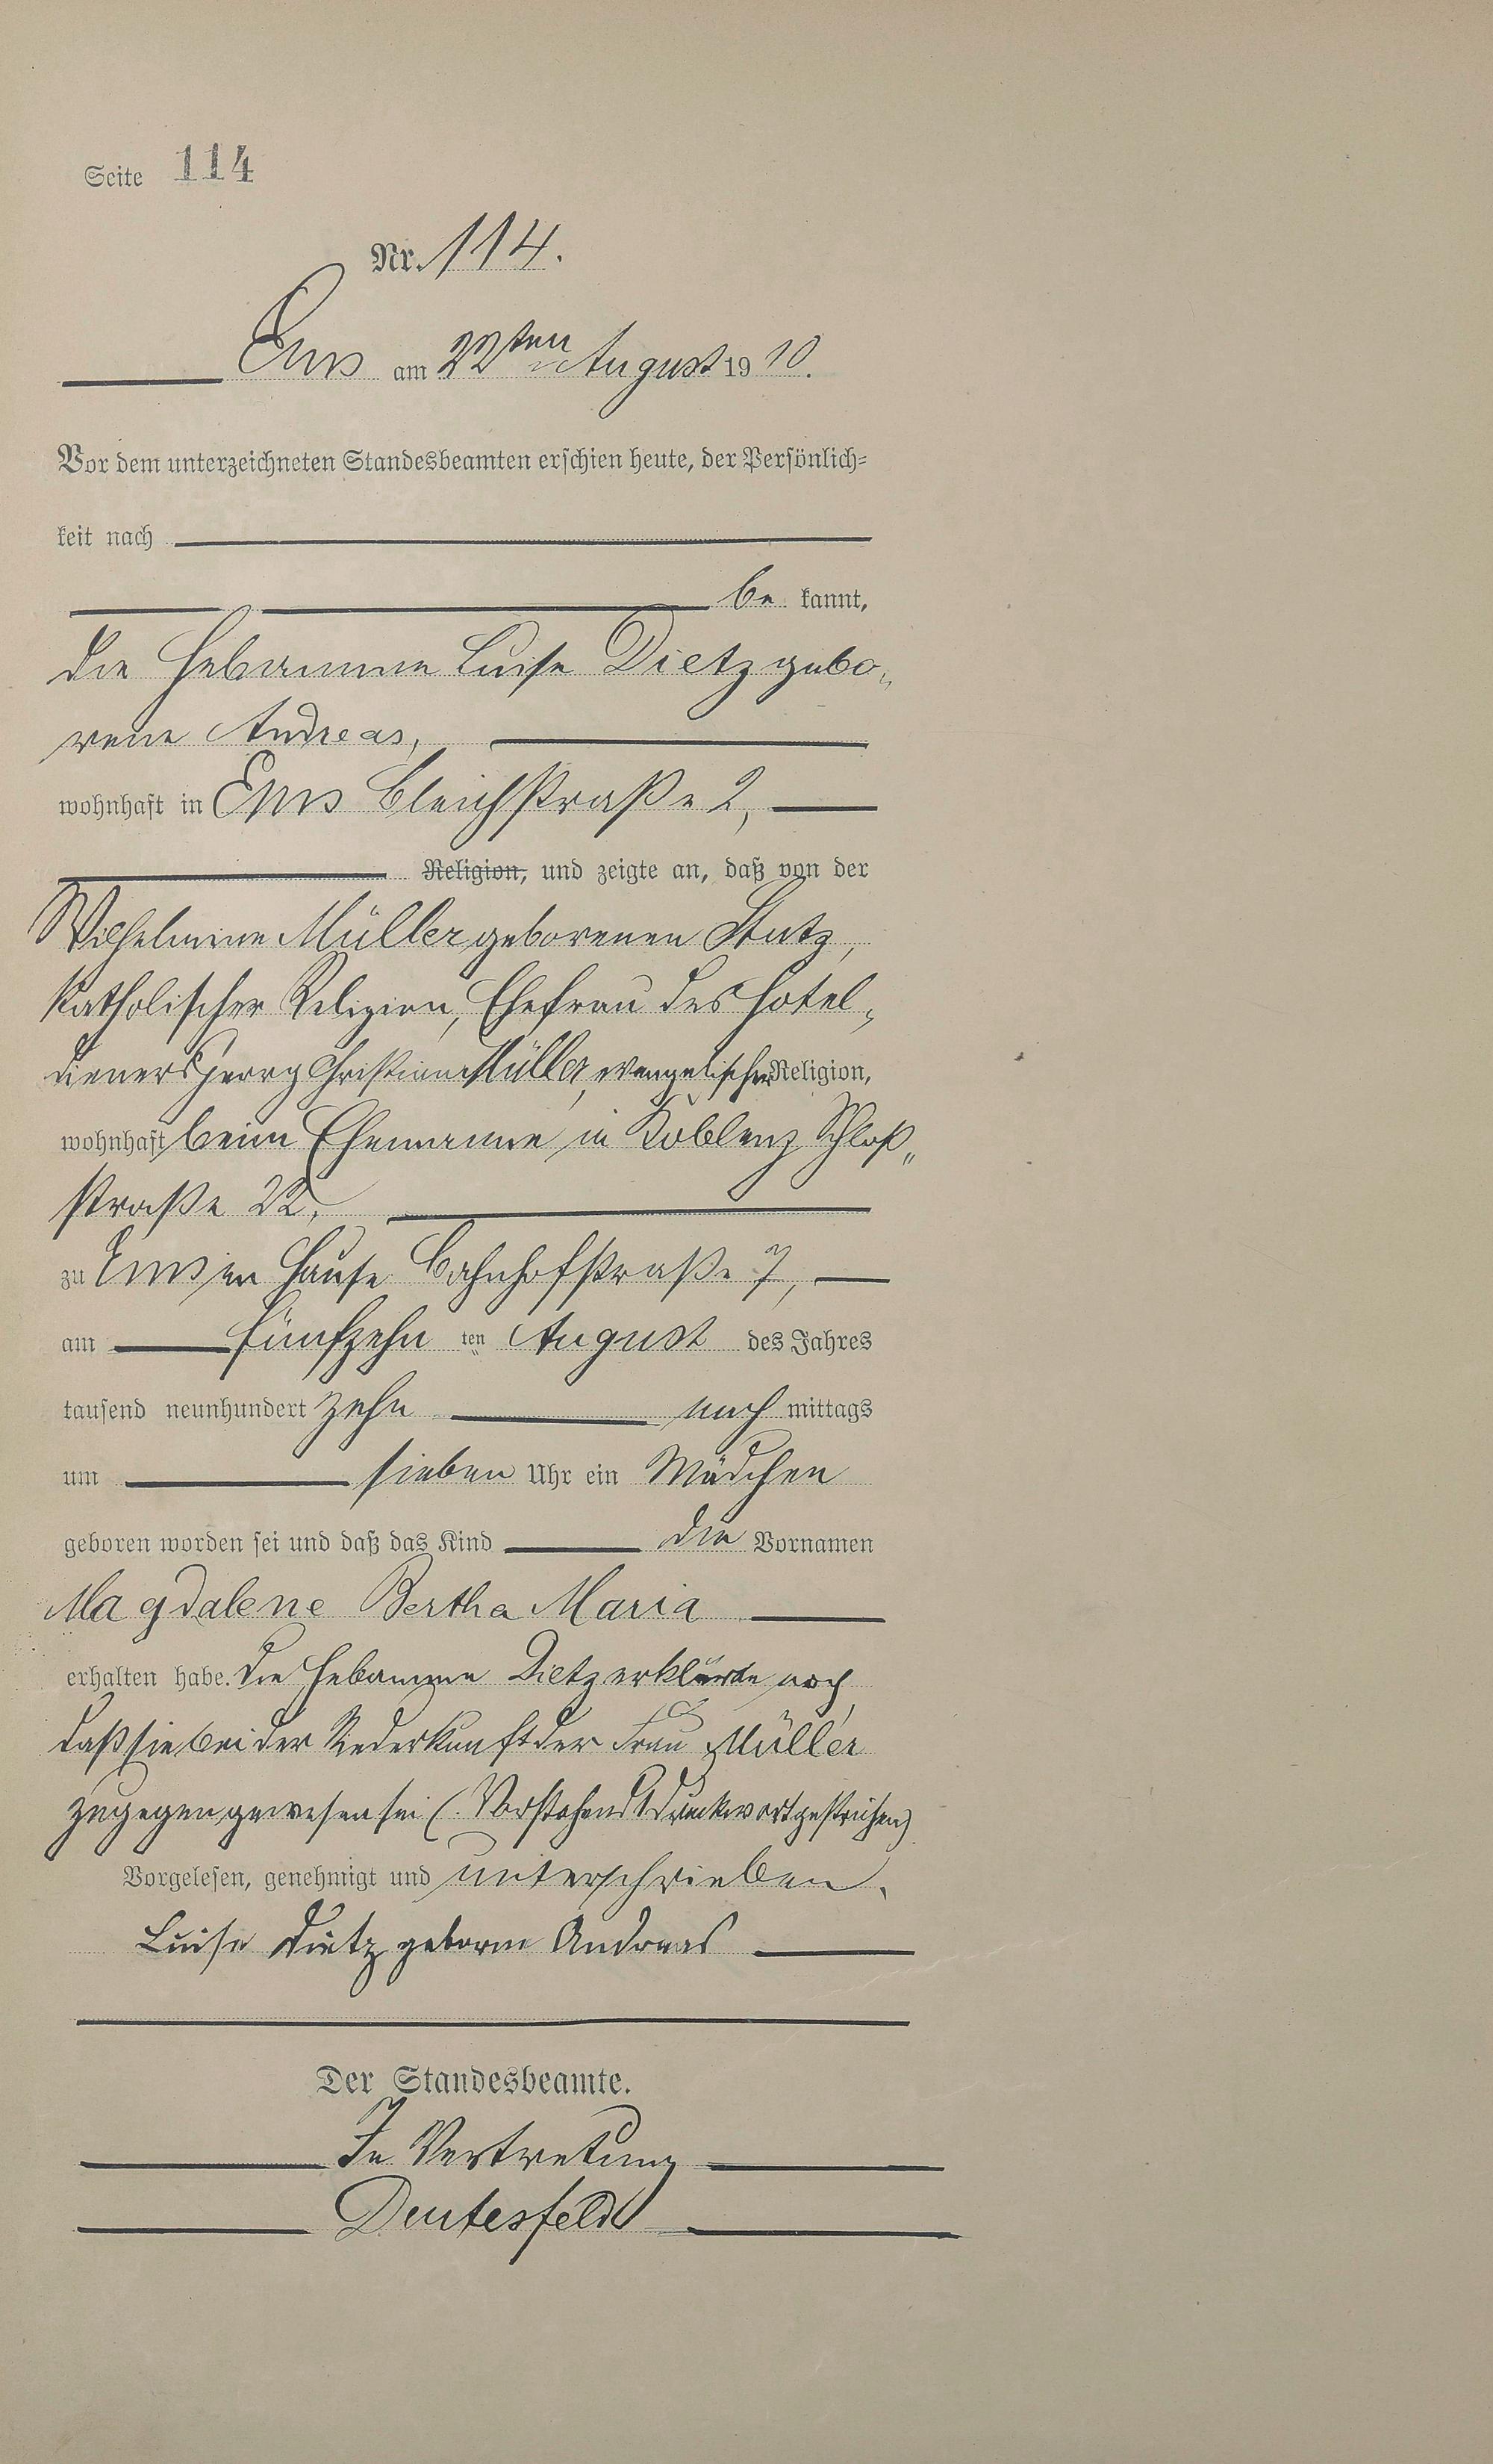 Seite 114
Nr. 114.
Ems am 22ten August 1910.
Vor dem unterzeichneten Standesbeamten erschien heute, der Persönlich=
keit nach
be kannt,
die Hebamme Luise Dietz gebo„
rene Andreas,
wohnhaft in Ems Bleichstraße 2,
Religion, und zeigte an, daß von der
Wilhelmine Müller geborenen Stutz,
katholischer Religion, Ehefrau des Hotel„
dieners Georg Christian Müller, evangelischer Religion,
wohnhaft beim Ehemanne in Koblenz Schloß„
straße 22,
zu Ems im Hause Bahnhofstraße 7,
am fünfzehn ten August des Jahres
tausend neunhundert zehn nach mittags
um sieben Uhr ein Mädchen
geboren worden sei und daß das Kind die Vornamen
Magdalene Bertha Maria
erhalten habe. Die Hebamme Dietz erklärte noch
daß sie bei der Niederkunft der Frau Müller
zugegen gewesen sei (. Vorstehend 1 Druckwort gestrichen)
Vorgelesen, genehmigt und unterschrieben.
Luise Dietz geborne Andreas
Der Standesbeamte.
In Vertretung
Deutesfeld